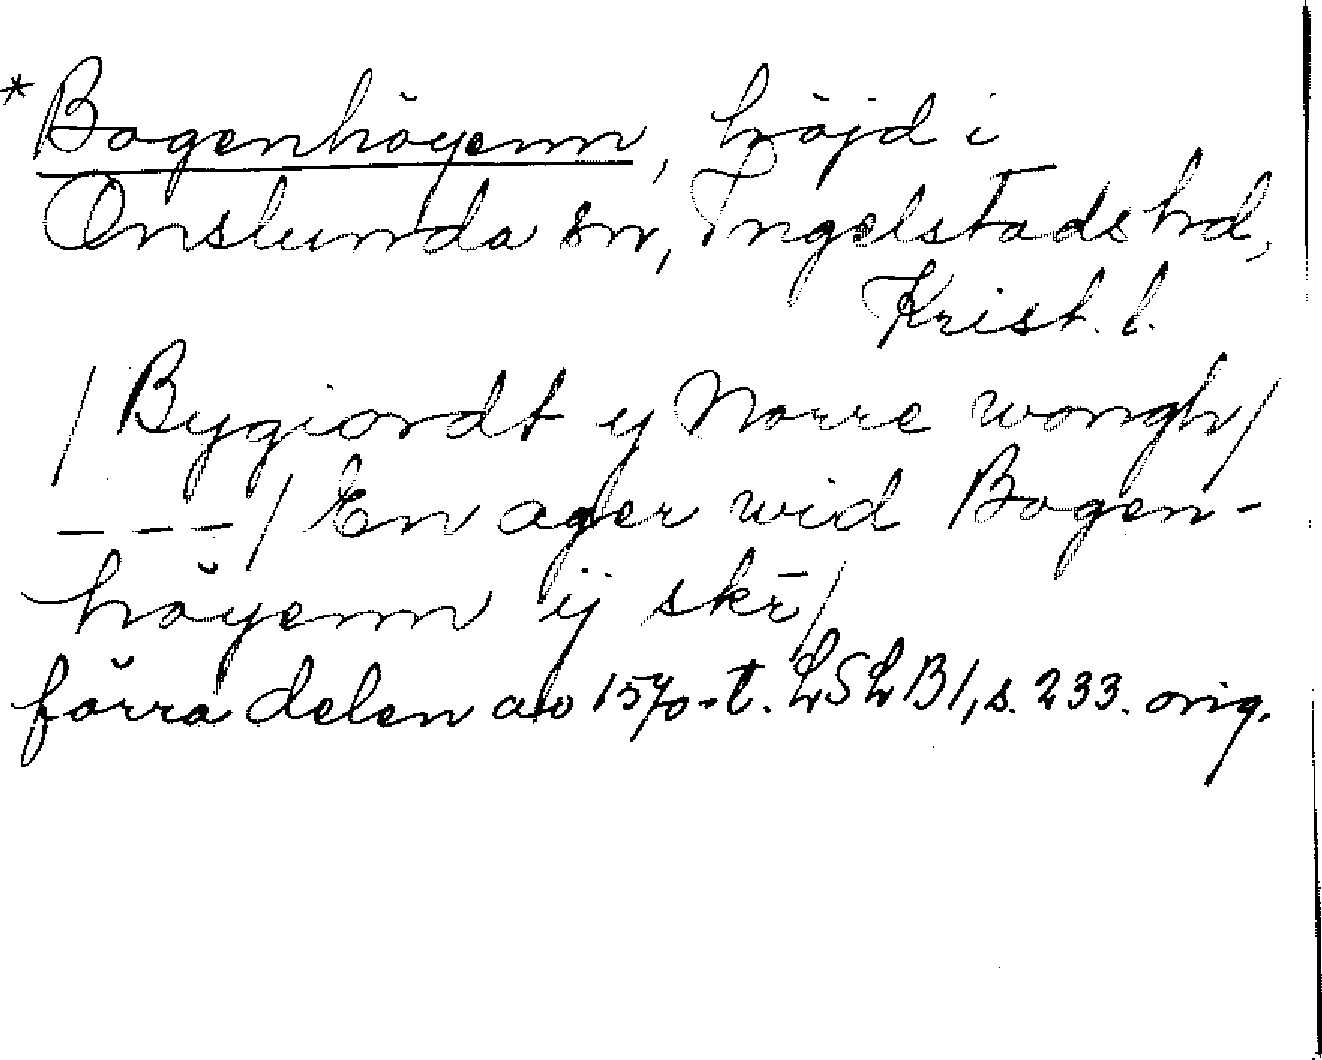 * Bogenhöyenn, höjd i
Onslunda sn, Ingelstads hd,
Krist. l.
/ Bygiordt y Norre wongh /
- - - / En ager wid Bogen-
höyenn ij skē /
förra delen av 1570-t. LSLB1, s. 233. orig.